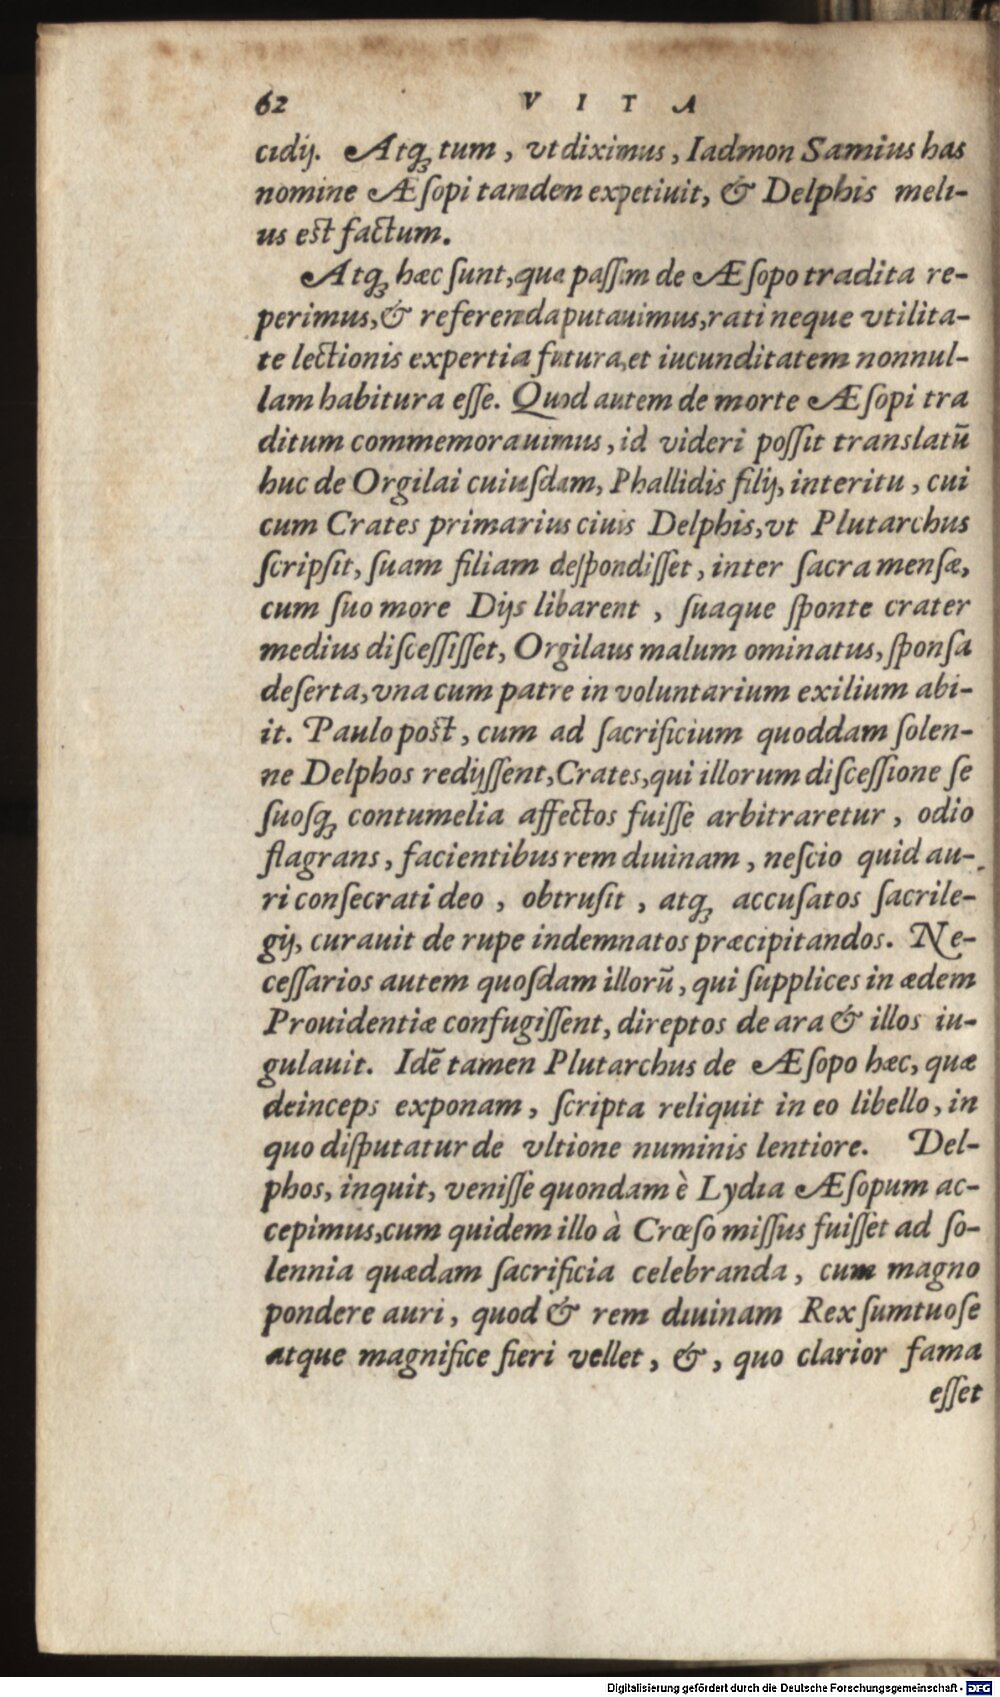 62 VITA
cidij. Atq; tum, vt diximus, Iadmon Samius has
nomine Æsopi tandem expetiuit, & Delphis meli-
us est factum.
Atq; hæc sunt, quæ passim de Æsopo tradita re-
perimus, & referenda putauimus, rati neque vtilita-
te lectionis expertia futura, et iucunditatem nonnul-
lam habitura esse. Quod autem de morte Æsopi tra
ditum commemorauimus, id videri possit translatū
huc de Orgilai cuiusdam, Phallidis filij, interitu, cui
cum Crates primarius ciuis Delphis, vt Plutarchus
scripsit, suam filiam despondisset, inter sacra mensæ,
cum suo more Dijs libarent, suaque sponte crater
medius discessisset, Orgilaus malum ominatus, sponsa
deserta, vna cum patre in voluntarium exilium abi-
it. Paulo post, cum ad sacrificium quoddam solen-
ne Delphos redijssent, Crates, qui illorum discessione se
suosq; contumelia affectos fuisse arbitraretur, odio
flagrans, facientibus rem diuinam, nescio quid au-
ri consecrati deo, obtrusit, atq; accusatos sacrile-
gij, curauit de rupe indemnatos præcipitandos. Ne-
cessarios autem quosdam illorū, qui supplices in ædem
Prouidentiæ confugissent, direptos de ara & illos iu-
gulauit. Idē tamen Plutarchus de Æsopo hæc, quæ
deinceps exponam, scripta reliquit in eo libello, in
quo disputatur de vltione numinis lentiore. Del-
phos, inquit, venisse quondam è Lydia Æsopum ac-
cepimus, cum quidem illo à Crœso missus fuisset ad so-
lennia quædam sacrificia celebranda, cum magno
pondere auri, quod & rem diuinam Rex sumtuose
atque magnifice fieri vellet, &, quo clarior fama
esset
Digitalisierung gefördert durch die Deutsche Forschungsgemeinschaft - DFG